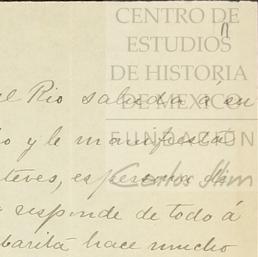 CENTRO DE
ESTUDIOS
DE HISTORIA
DE MEXICO
FUNDACIÓN
Carlos Slim
el Rio saluda á su
o y le manifiesta
teves, es persona di
responde de todo á
barita hace mucho